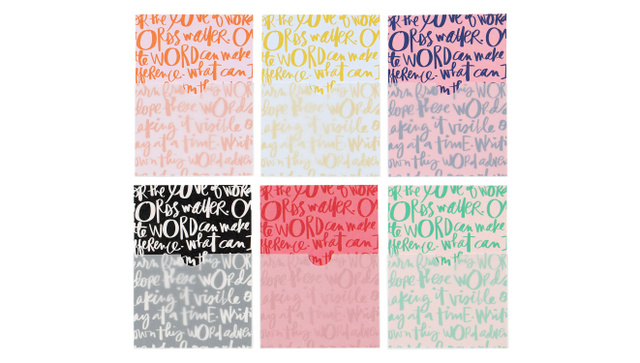 OR THE LOVE OF WORD
ORDS MATTER. O
the WORD can make
fference what can I
hope these WORDS
aking it visible o
ay at a time. Writi
own thy WORD
OR THE LOVE OF WORD
ORDS MATTER. O
the WORD can make
fference what can I
hope these WORDS
aking it visible o
ay at a time. Writi
own thy WORD
OR THE LOVE OF WORD
ORDS MATTER. O
the WORD can make
fference what can I
hope these WORDS
aking it visible o
ay at a time. Writi
own thy WORD
OR THE LOVE OF WORD
ORDS MATTER. O
the WORD can make
fference what can I
hope these WORDS
aking it visible o
ay at a time. Writi
own thy WORD
OR THE LOVE OF WORD
ORDS MATTER. O
the WORD can make
fference what can I
hope these WORDS
aking it visible o
ay at a time. Writi
own thy WORD
OR THE LOVE OF WORD
ORDS MATTER. O
the WORD can make
fference what can I
hope these WORDS
aking it visible o
ay at a time. Writi
own thy WORD